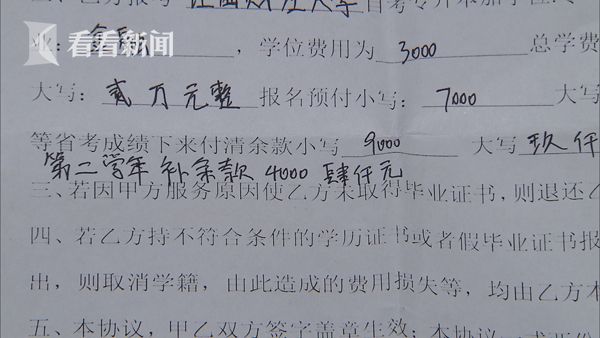 二、乙方报考 江西财经大学 自考专升本加学位
业：金融，学位费用为 3000 总学费
大写：贰万元整 报名预付小写：7000 大写
等省考成绩下来付清余款小写 9000 大写 玖仟
第二学年补余款 4000 肆仟元
三、若因甲方服务原因使乙方未取得毕业证书，则退还乙
四、若乙方持不符合条件的学历证书或者假毕业证书报
出，则取消学籍，由此造成的费用损失等，均由乙方本
五、本协议，甲乙双方签字盖章生效；本协议一式两份
看看新闻